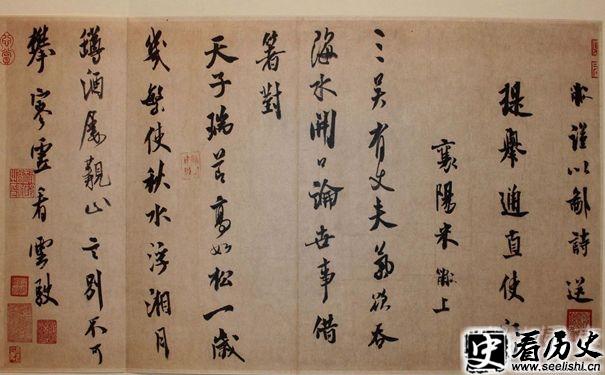 黻謹以鄙詩送
提舉通直使
襄陽米黻上
三吳有丈夫氣欲吞
海水開口論世事借
箸對
天子瑞節高如松一歲
幾繁使秋水浮湘月
樽酒屢別不可
攀寒雲看雲駛
史 看历史
www.seelishi.cn